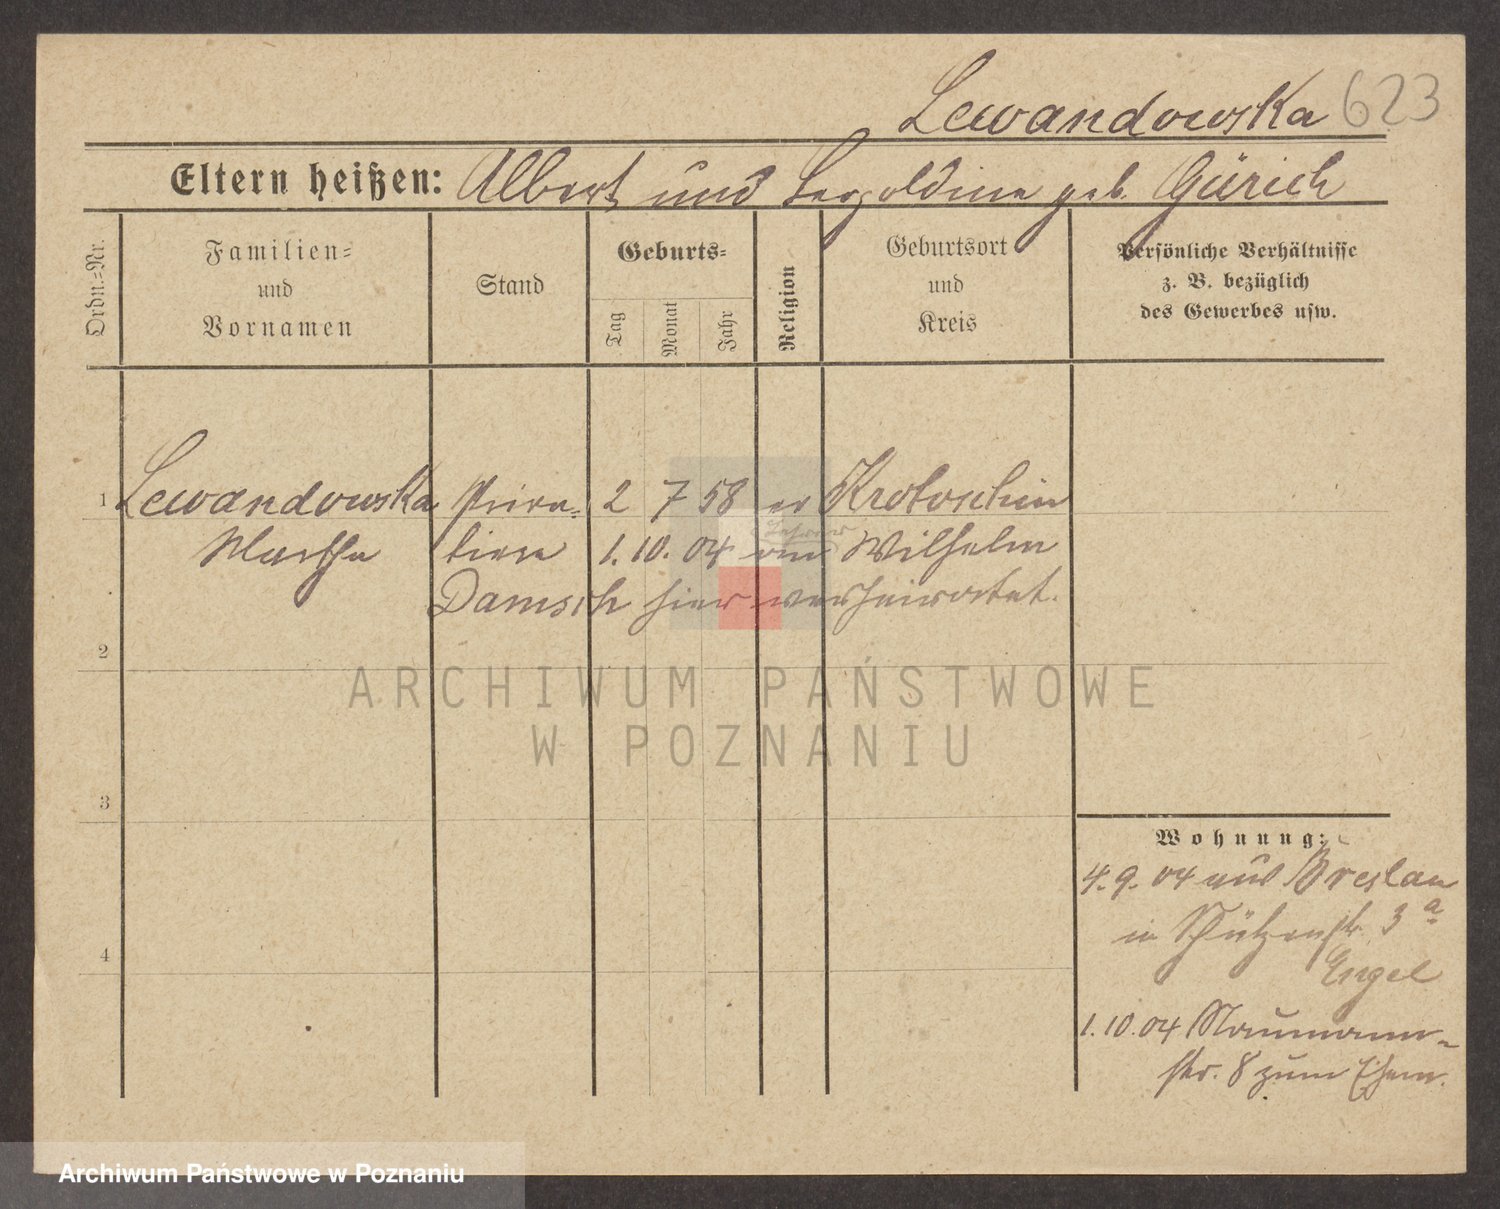 Lewandowska 623
Eltern heißen: Albert und Leopoldine geb. Gürich
Ordn.=Nr.
Familien=
und
Vornamen
Stand
Geburts=
Tag
Monat
Jahr
Religion
Geburtsort
und
Kreis
Persönliche Verhältnisse
z. B. bezüglich
des Gewerbes usw.
1 Lewandowska Priva= 2 7 58 ev Krotoschin
Lehrer
Martha tiere 1. 10. 04 am Wilhelm
Damsch hier verheiratet.
2
3
4
Wohnung:
4. 9. 04 aus Breslau
in Schützenstr. 3 a
Engel
1. 10. 04 Naumann=
str. 8 zum Ehem.
ARCHIWUM PAŃSTWOWE
W POZNANIU
Archiwum Państwowe w Poznaniu